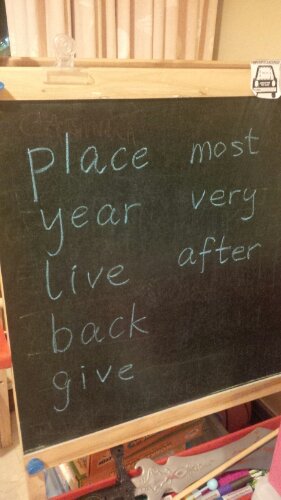 place
year
live
back
give
most
very
after